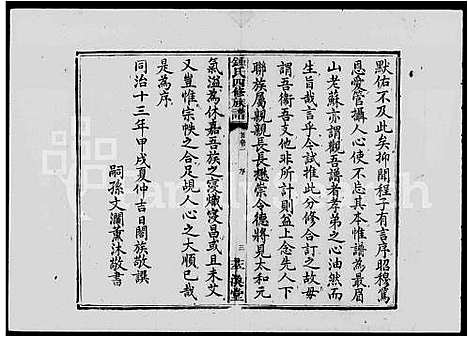 默佑不及此矣抑聞程子有言序昭穆篤
恩愛管攝人心使不忘其本惟譜為最眉
山老蘇亦謂觀吾譜者孝弟之心油然而
生旨哉言乎今試推此分修合訂之故毋
謂吾衛吾支他非所計則盆上念先人下
聯族屬親親長長懋崇令德將見太和元
鍾氏四修族譜
首卷一 序 三
氣溢為休嘉吾族之寖熾寖昌或且未艾
又豈惟宗盟之合足覘人心之大順已哉
是為序
同治十三年甲戌夏仲吉日闔族敬譔
嗣孫文瀾薰沐敬書